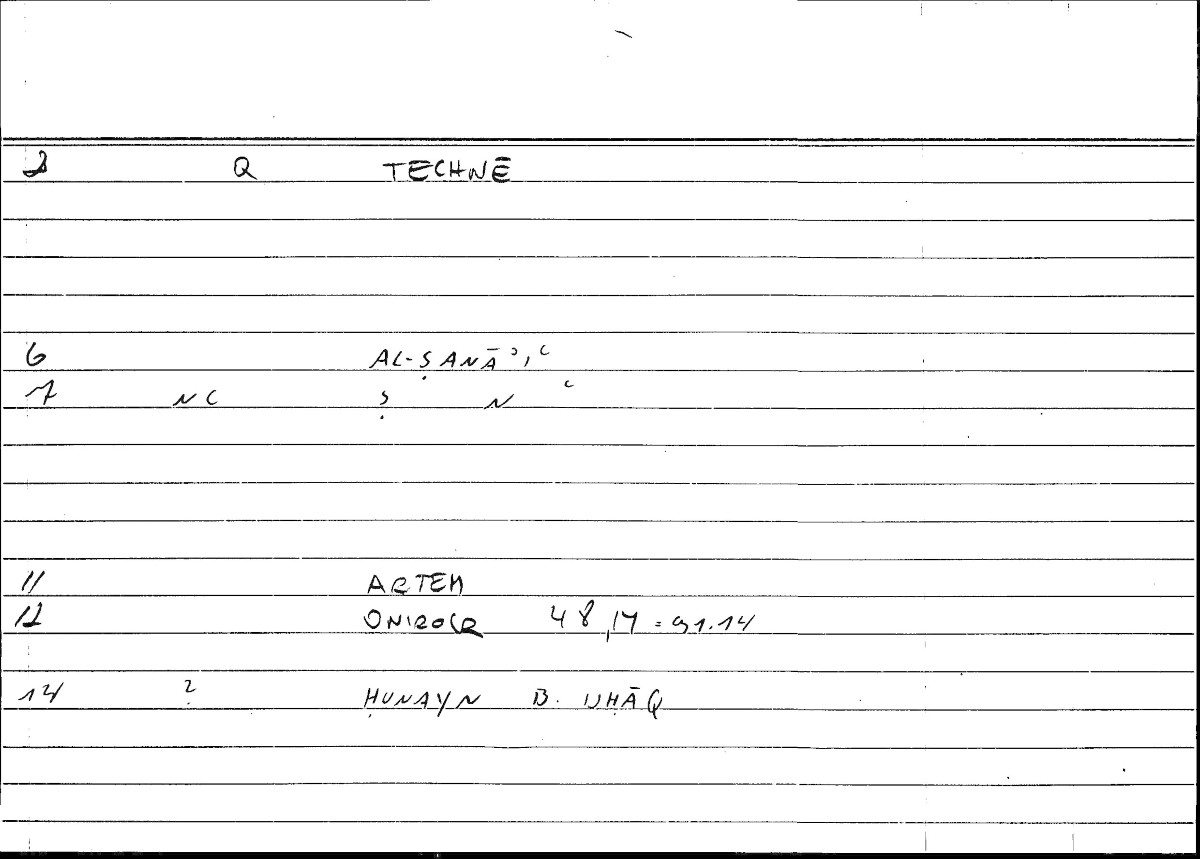 2 Q TECHNĒ
6 AL-ṢANĀʾIʿ
7 NC Ṣ N ʿ
11 ARTEM
12 ONIROCR 48,14 = 91.14
14 ? ḤUNAYN B. ISḤĀQ